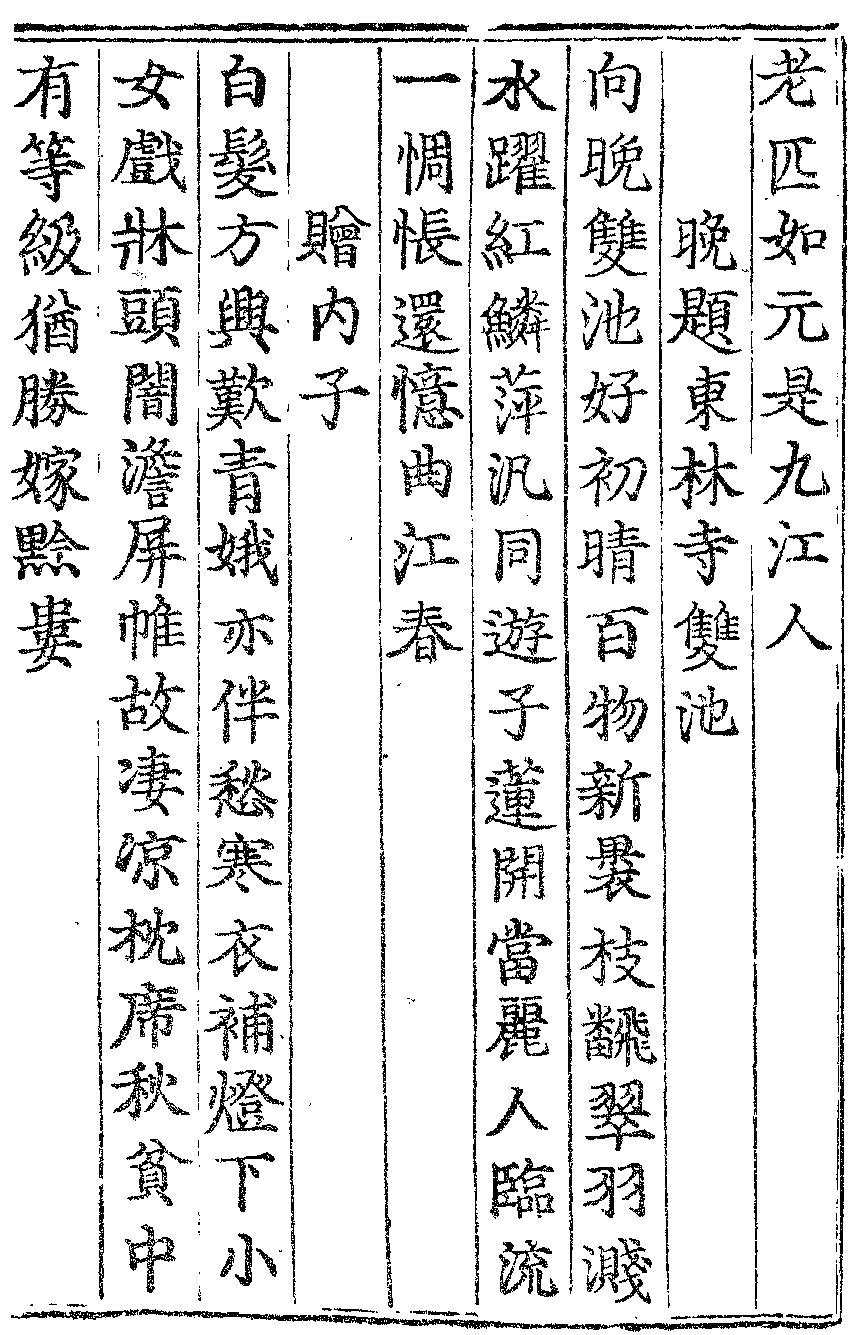 老匹如元是九江人
晚題東林寺雙池
向晚雙池好初晴百物新褭枝飜翠羽濺
水躍紅鱗萍汎同遊子蓮開當麗人臨流
一惆悵還憶曲江春
贈内子
白髮方興歎青娥亦伴愁寒衣補燈下小
女戲牀頭闇澹屏帷故凄凉枕席秋貧中
有等級猶勝嫁黔婁